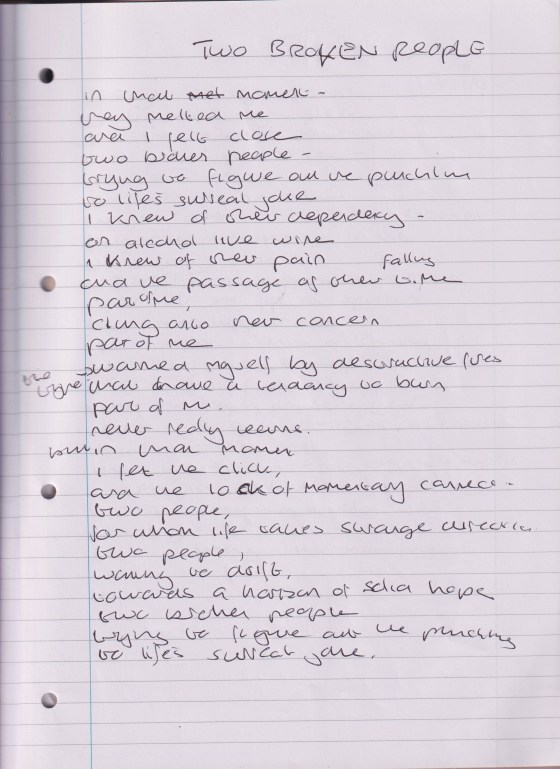 TWO BROKEN PEOPLE
in that met moment -
they melted me
and I felt close
two broken people -
trying to figure out the punchline
to life's surreal joke
I knew of their dependency -
on alcohol like wine
I knew of their pain falling
and the passage of their time
part of me,
clung onto their concern
part of me
warmed myself by destructive fires
the type that have a tendancy to burn
part of me
never really learns.
but in that moment
I felt the click,
and the lock of momentary connect -
two people,
for whom life takes strange direction
two people,
wanting to drift,
towards a horizon of solid hope
two broken people
trying to figure out the punchline
to life's surreal joke.